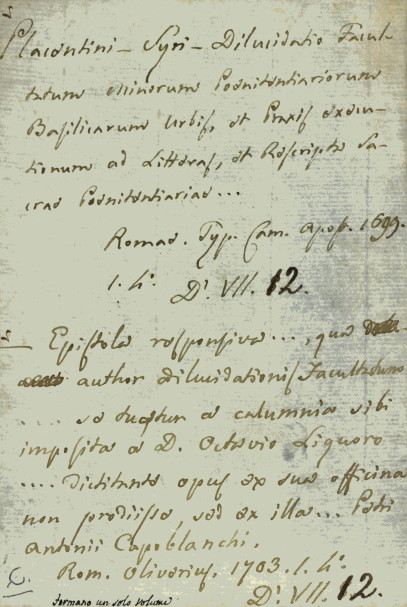 Placentini - Syri - Dilucidatio Facul-
tatum Minorum Poenitentiariorum
Basilicarum Urbis, et Praxis execu-
tionum ad Litteras, et Rescripta Sa-
crae Poenitentiariae...
Romae. Typ. Cam. Apost. 1699.
1. 4º.
Dº. VII. 12.
Epistola responsiva ..., qua
author dilucidationis Facultatum
.... se tuetur a calumnia sibi
imposita a D. Octavio Liguoro
.... Dictitante opus ex sua officina
non prodiisse, sed ex illa ... Petri
Antonii Capoblanchi.
Rom. Oliverius. 1703. 1. 4º.
Dº. VII. 12.
formano un solo volume